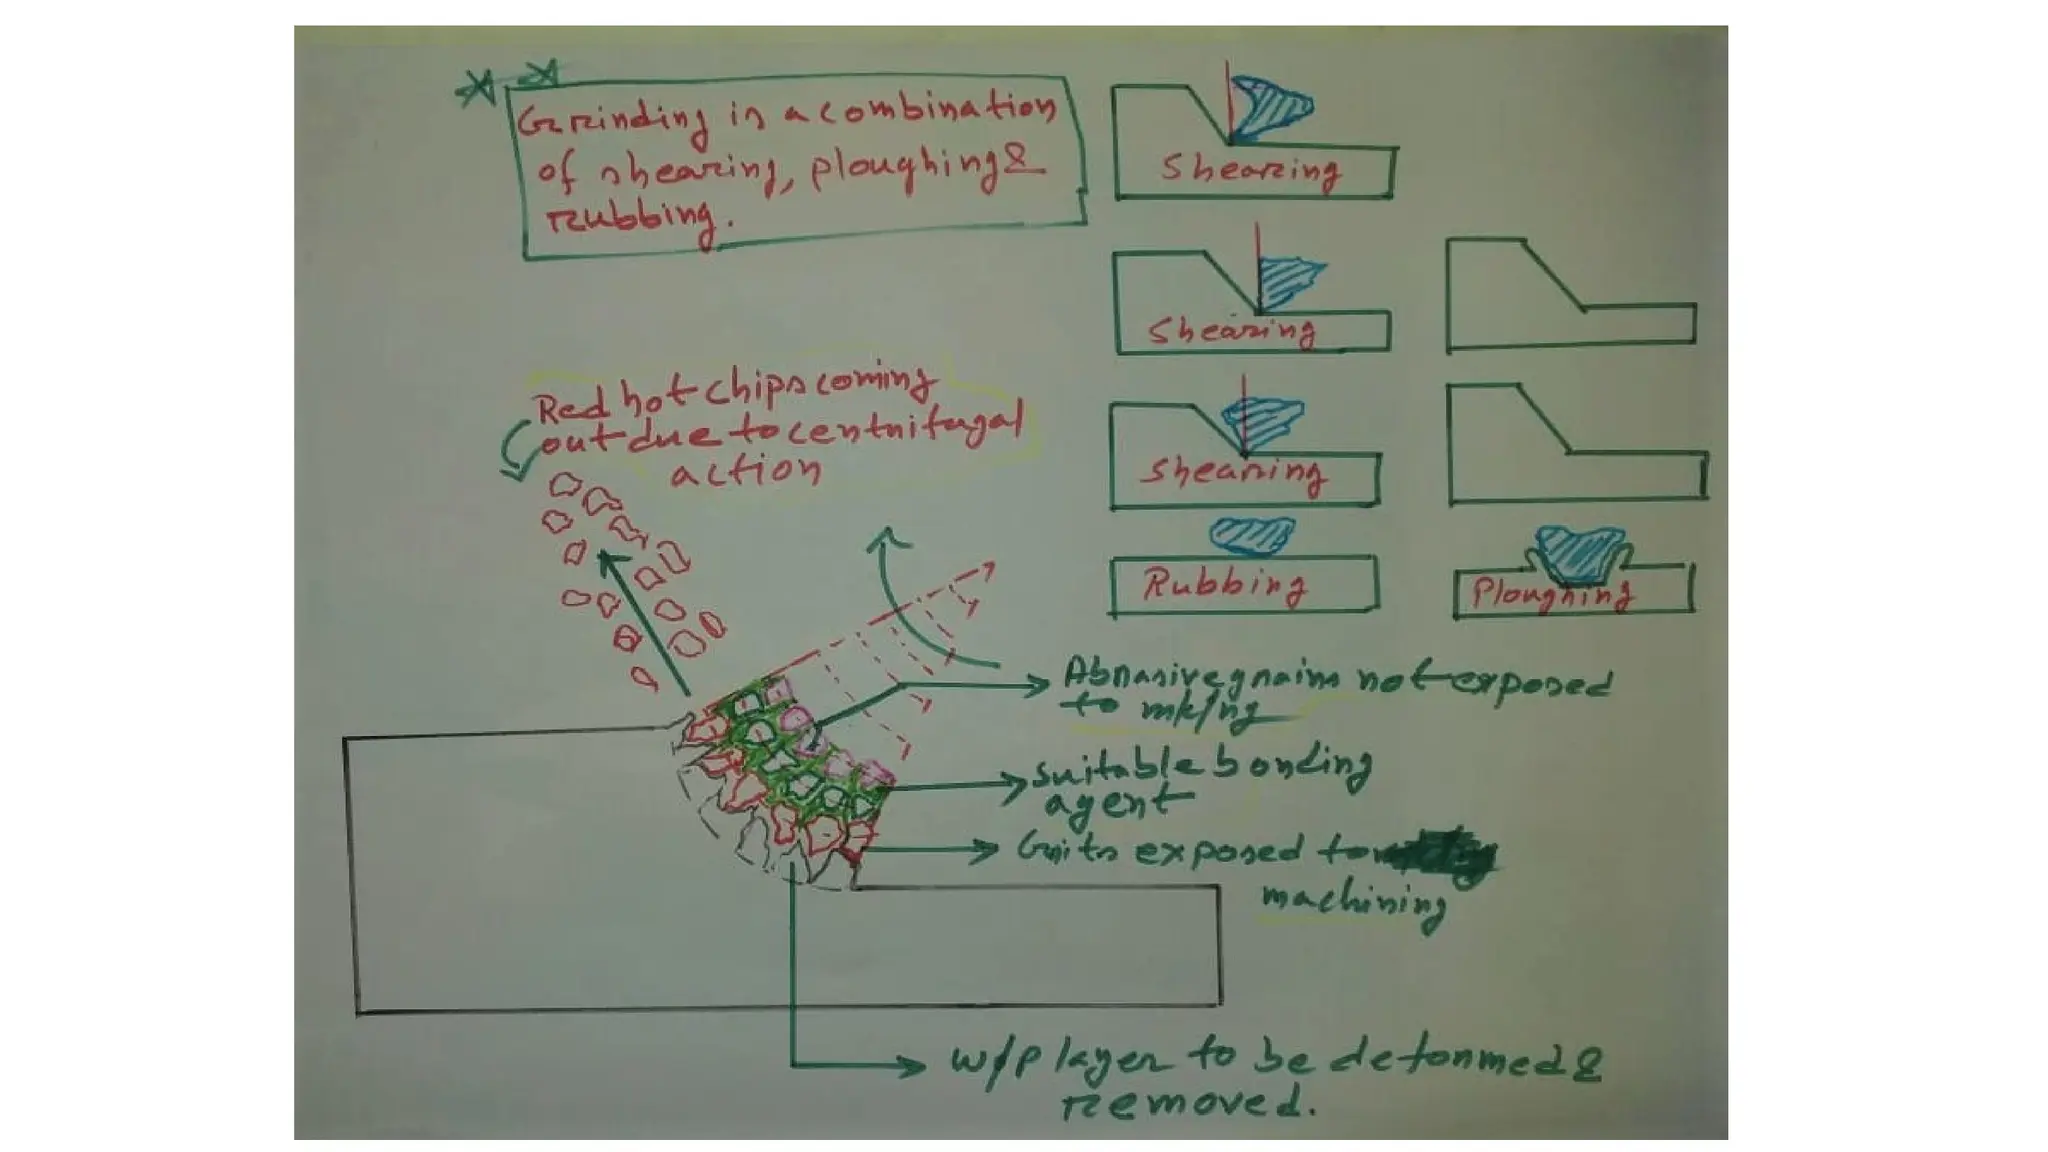 Grinding is a combination
of shearing, ploughing &
rubbing.
Shearing
Shearing
Shearing
Rubbing
Ploughing
Red hot chips coming
out due to centrifugal
action
Abrasive grains not exposed
to mk/ng
suitable bonding
agent
Grits exposed to
machining
w/p layer to be deformed &
removed.